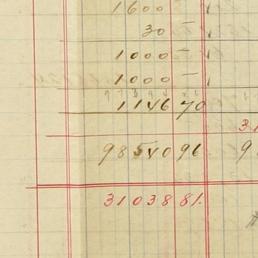 1600
30 —
1000 —
1000 —
1146 70
3
98540 96 9
31038 81.